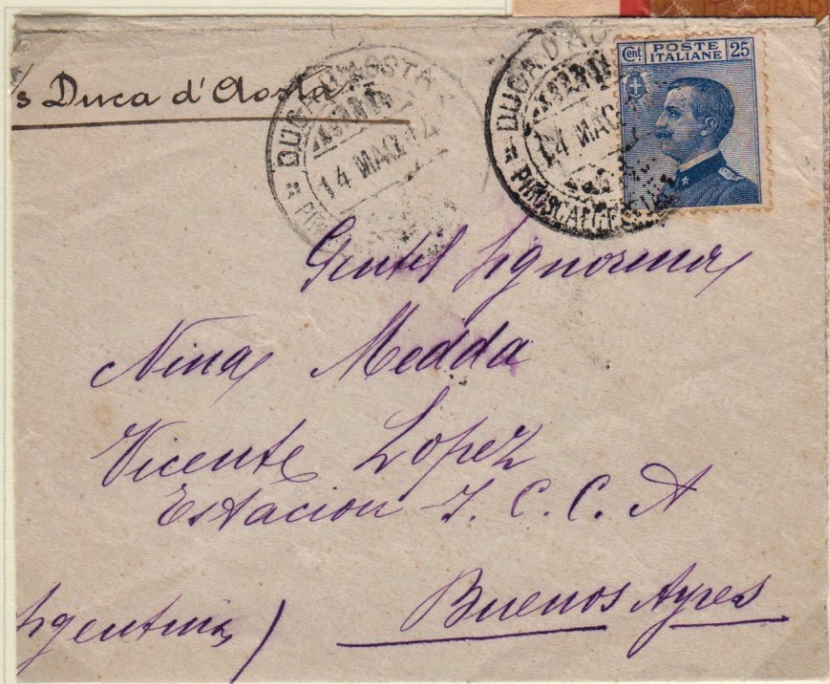 /s Duca d'Aosta
DUCA D'AOSTA
14 MAG
PIROSCAFO
DUCA D'AO
14 MAG
PIROSCAFO
Cent. POSTE ITALIANE 25
Gentil Signorina
Nina Medda
Vicente Lopez
Estacion F. C. C. A
Buenos Ayres
rgentina)